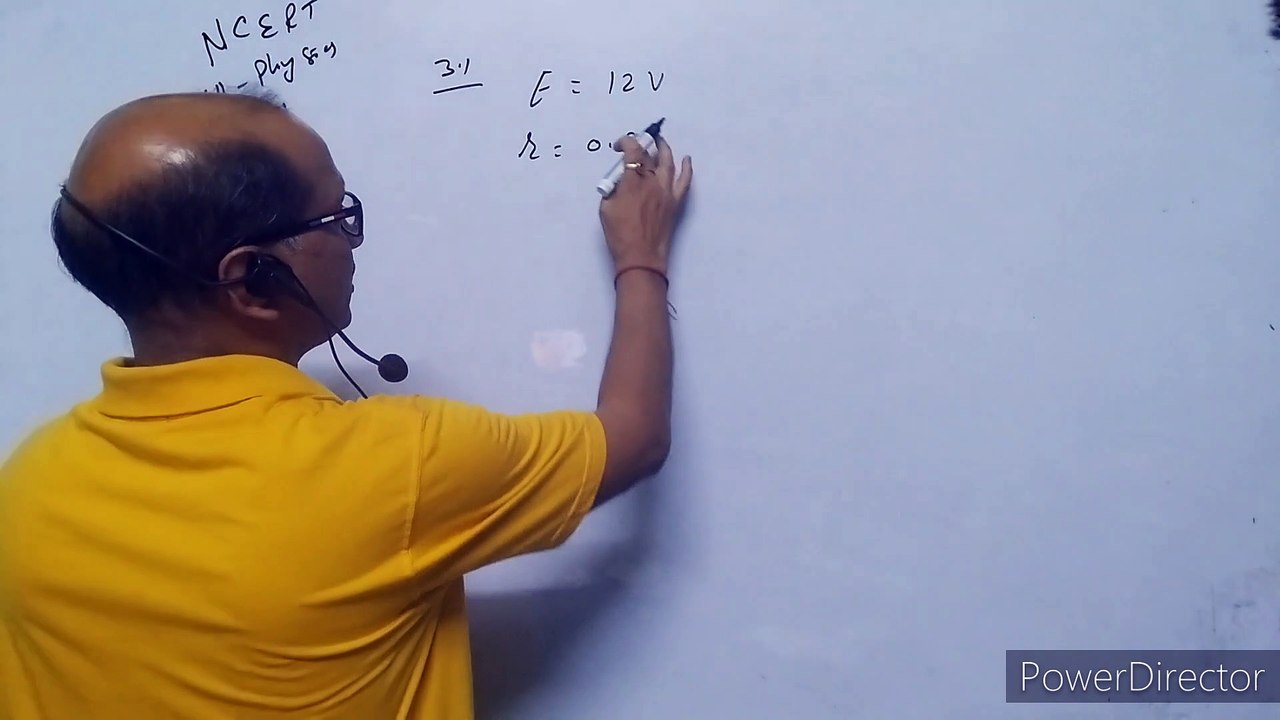 NCERT
- Physics
3.1
E = 12 V
r = 0.
PowerDirector